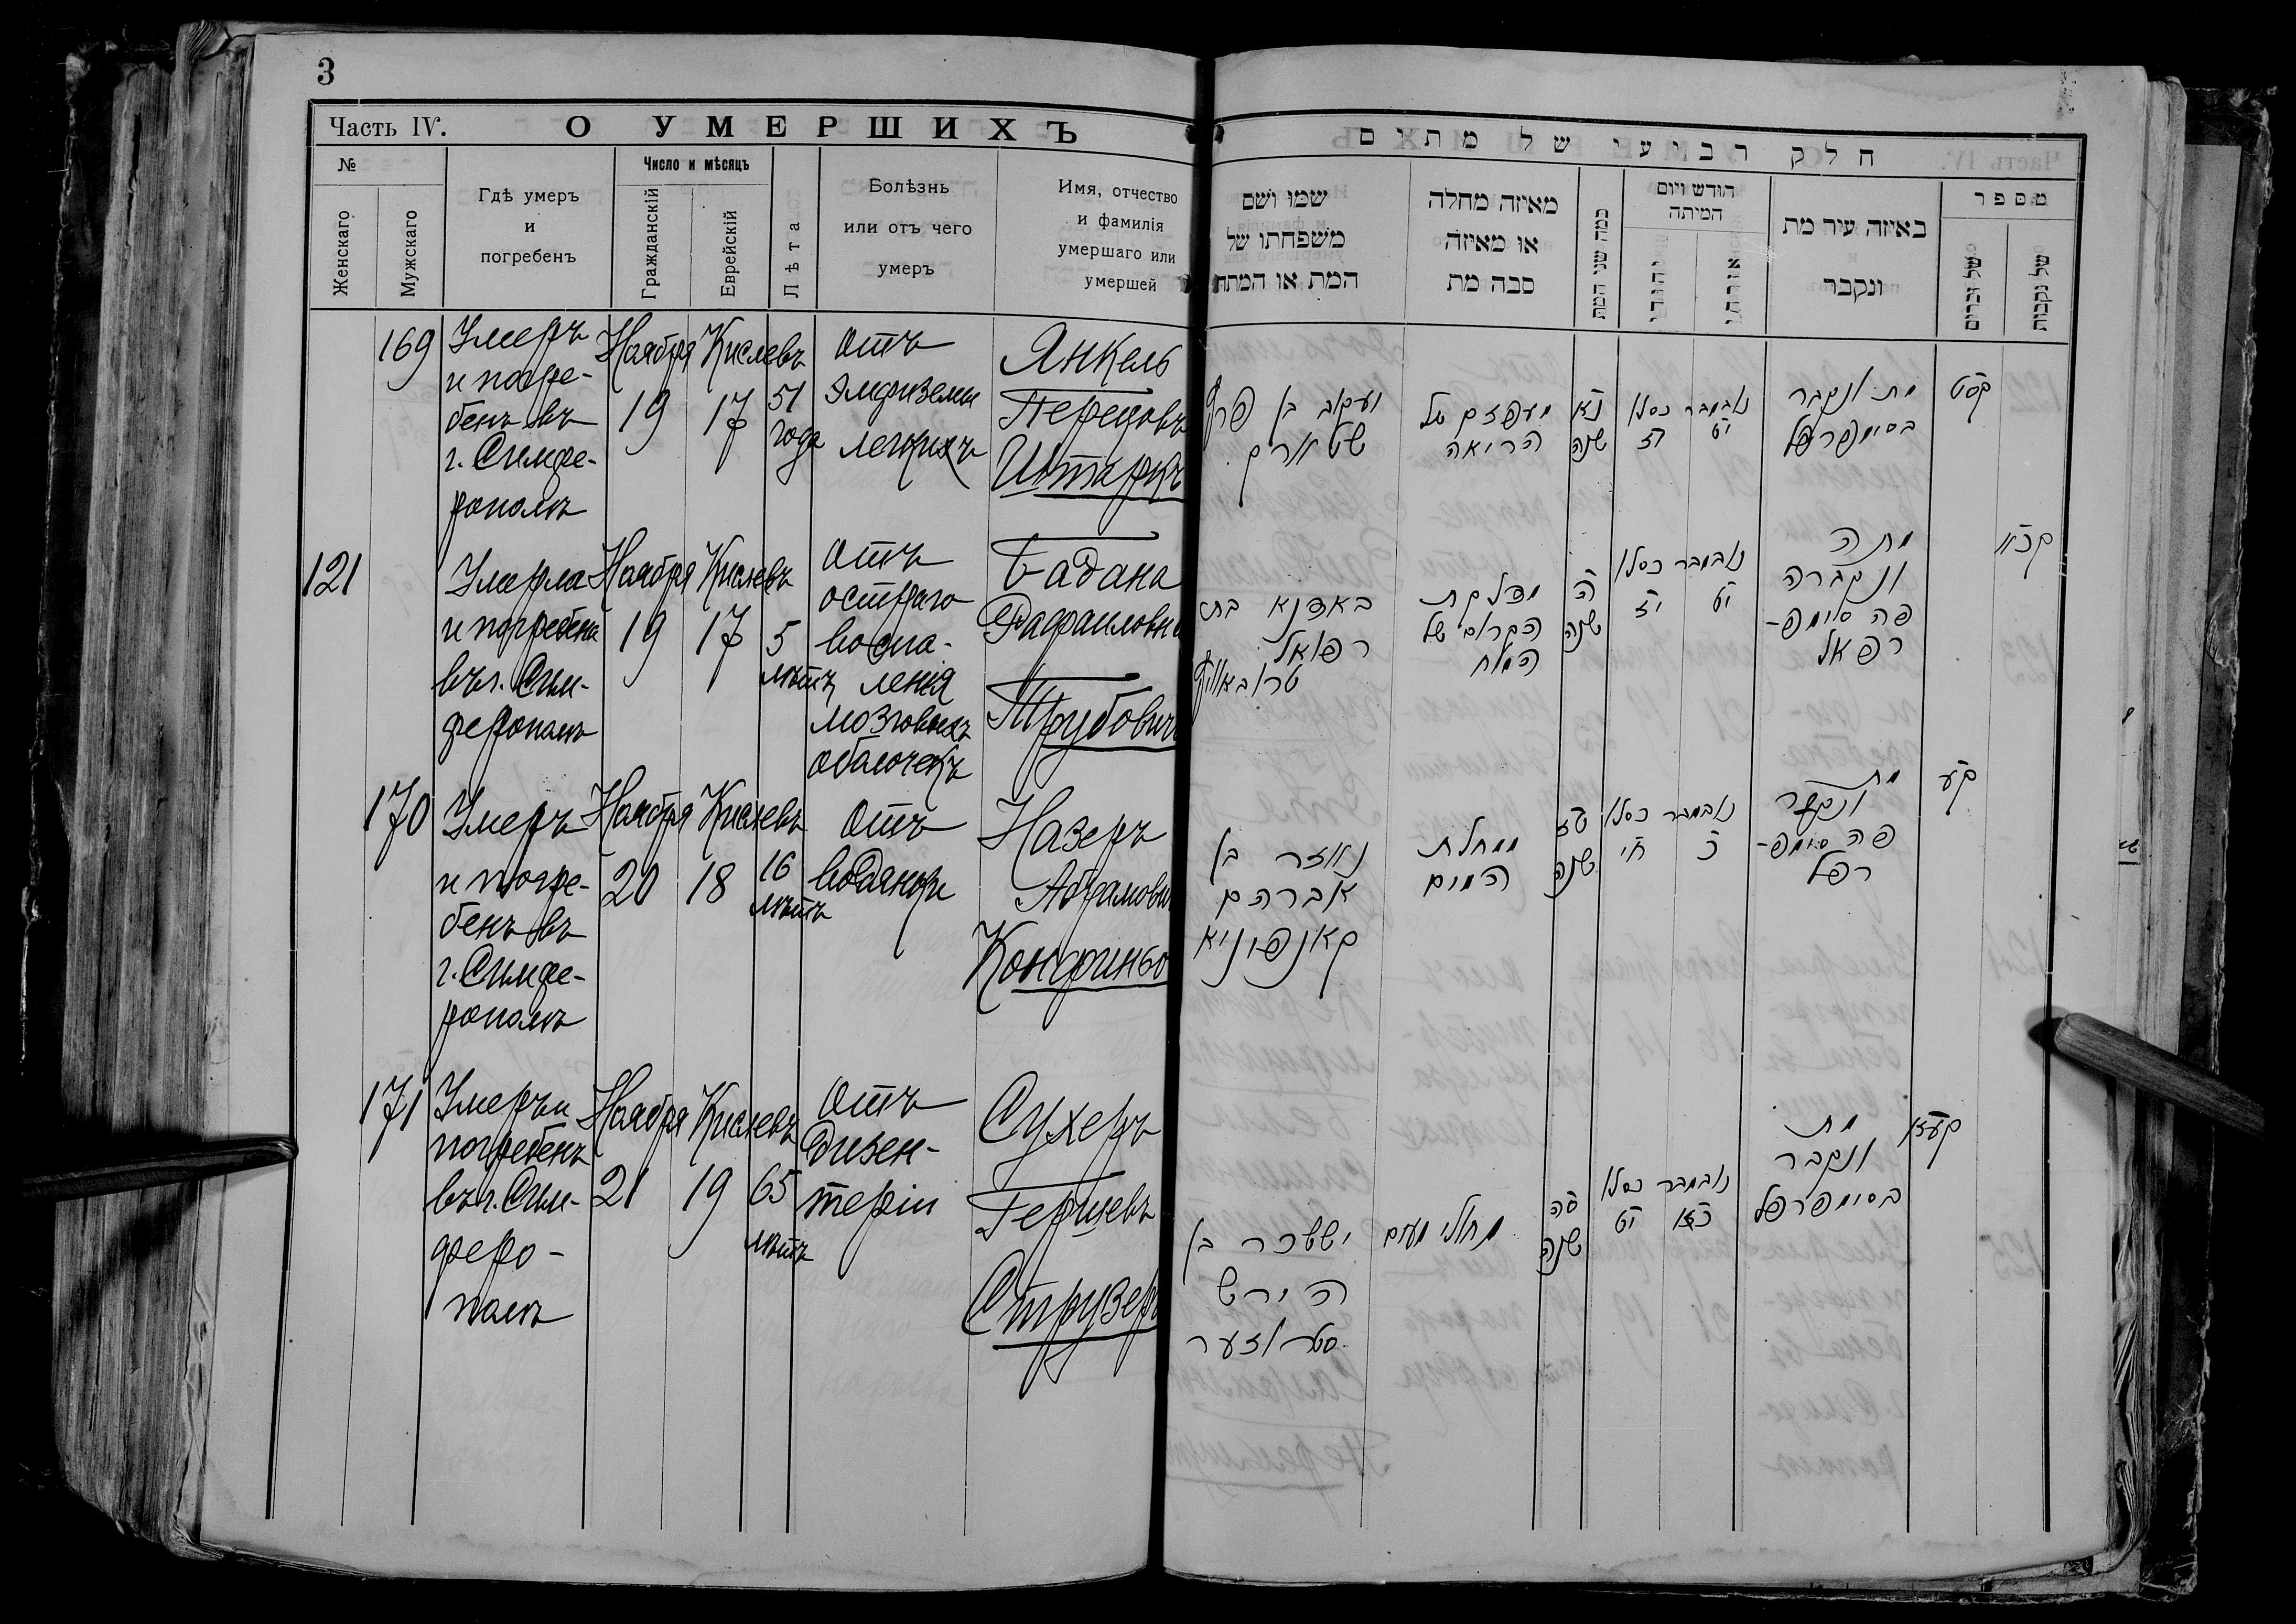 3
Часть IV. О УМЕРШИХЪ
№
Женскаго
Мужскаго
Гдѣ умеръ
и
погребенъ
Число и мѣсяцъ
Гражданскій
Еврейскій
Лѣта
Болѣзнь
или отъ чего
умеръ
Имя, отчество
и фамилія
умершаго или
умершей
169
Умеръ
и погре-
бенъ въ
г. Симфе-
рополѣ
Ноября
19
Кислевъ
17
51
года
отъ
эмфиземы
легкихъ
Янкель
Перецовъ
Штаркъ
121
Умерла
и погребена
въ г. Сим-
ферополѣ
Ноября
19
Кислевъ
17
5
лѣтъ
отъ
остраго
воспа-
ленія
мозговыхъ
оболочекъ
Бадана
Рафаиловна
Трубовичъ
170
Умеръ
и погре-
бенъ въ
г. Симфе-
рополѣ
Ноября
20
Кислевъ
18
16
лѣтъ
отъ
водянки
Назеръ
Абрамовичъ
Конфиньо
171
Умеръ и
погребенъ
въ г. Сим-
феро-
полѣ
Ноября
21
Кислевъ
19
65
лѣтъ
отъ
Дизен-
теріи
Сухеръ
Гершевъ
Струзеръ
חלק רביעי של מתים
מספר
של נקבות
של זכרים
באיזה עיר מת
ונקבר
הודש ויום
המיתה
כמה שני המת
מאיזה מחלה
או מאיזה
סבה מת
שמו ושם
משפחתו של
המת או המתה
קסט
מת ונקבר
בסימפרפל
נאבמבר
יט
כסלו
יז
נא
שנה
הריאה
יעקב בן פרץ
שטארק
קכא
מתה
ונקברה
פה סימפ-
רפאל
נאבמבר
יט
כסלו
יז
ה
שנה
מדלקת
הקרום של
המח
באדנא בת
רפאל
קע
מת
ונקבר
פה סימפ-
רפל
נאבמבר
כ
כסלו
חי
טז
שנה
ממחלת
המים
נאזר בן
אברהם
קאנפיניא
קעא
מת
ונקבר
בסימפרפל
נאבמבר
כא
כסלו
יט
סה
שנה
מחולי מעים
יששכר בן
הירש
סטרוזער